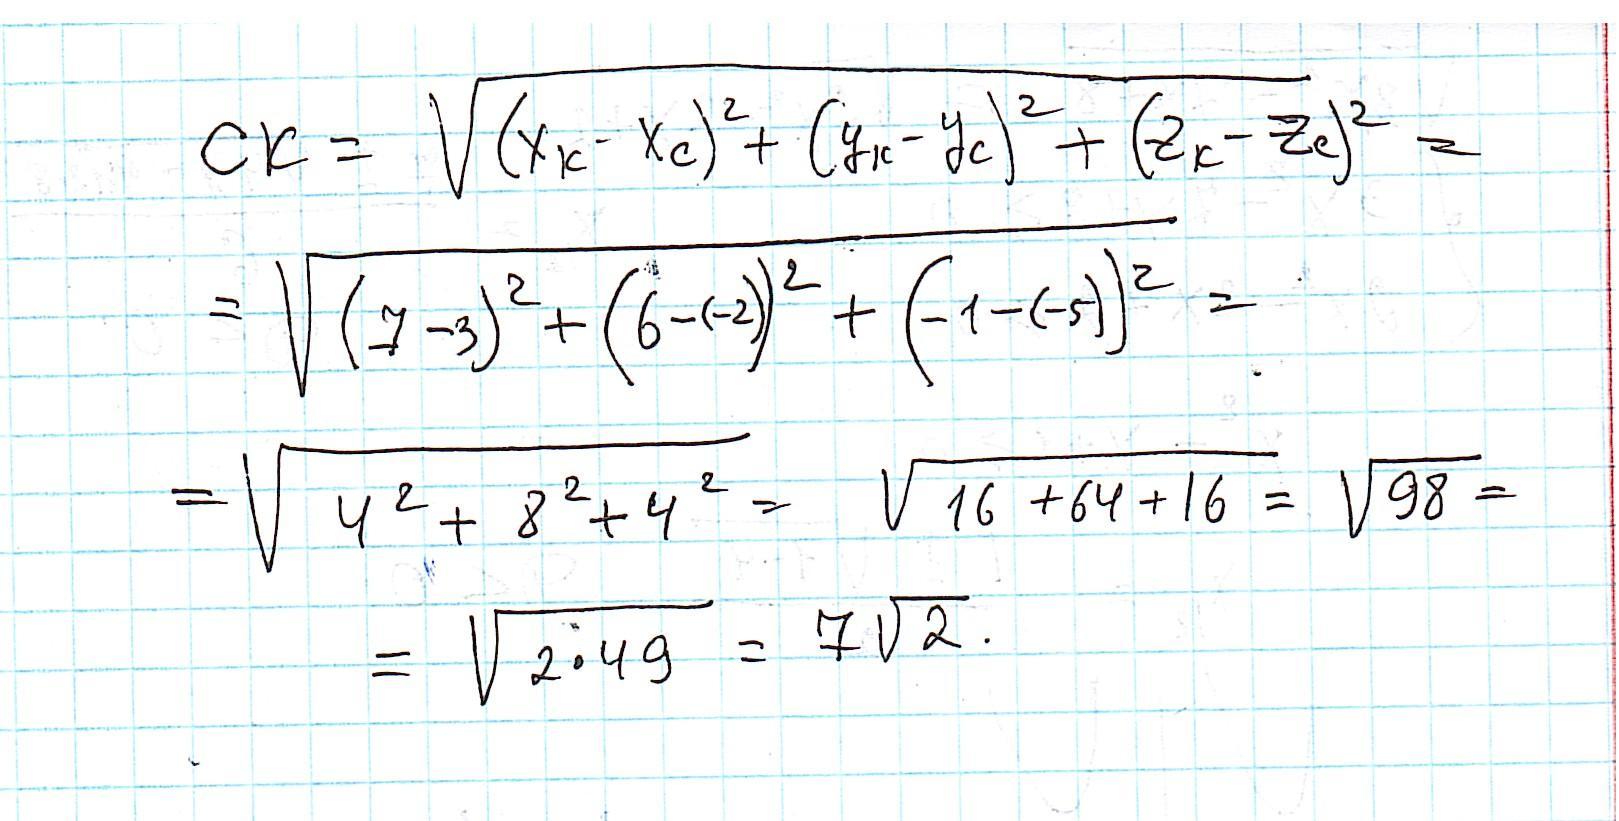 CK = √((x_K - x_C)² + (y_K - y_C)² + (z_K - z_C)²) =
= √((7-3)² + (6-(-2))² + (-1-(-5))²) =
= √(4² + 8² + 4²) = √(16 + 64 + 16) = √98 =
= √(2·49) = 7√2.